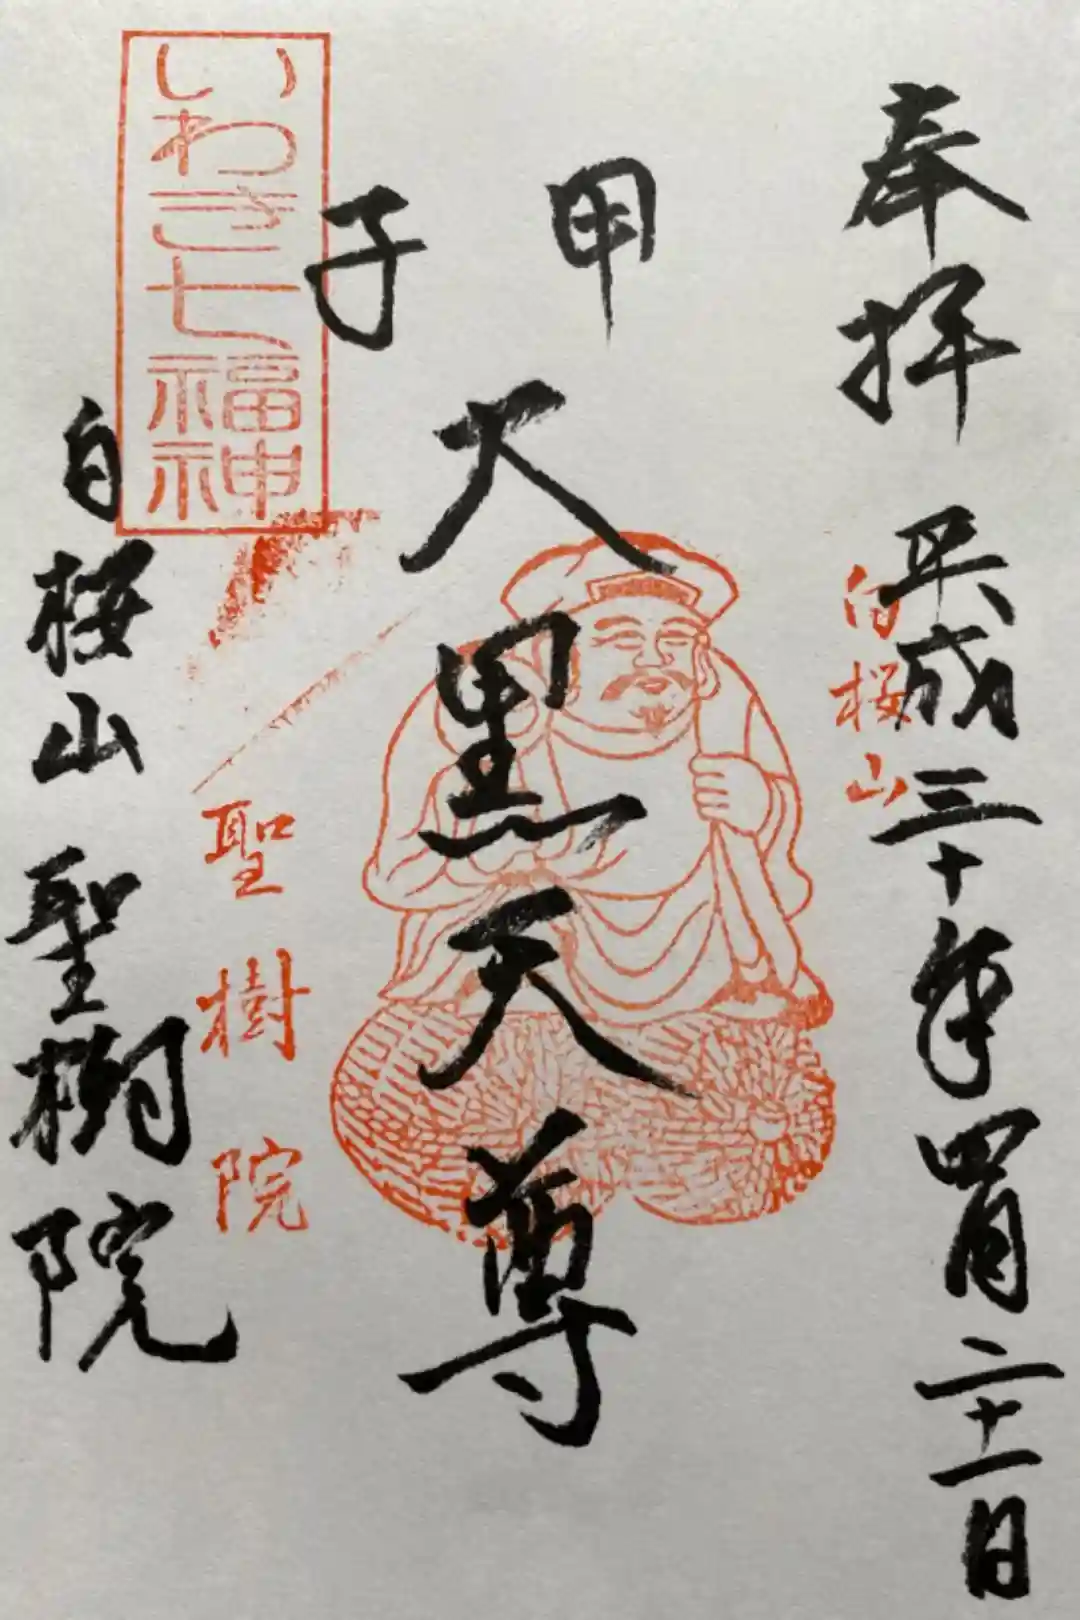 奉拝 平成三十年四月二十一日
白桜山
甲子
大黒天尊
いわき七福神
聖樹院
白桜山 聖樹院